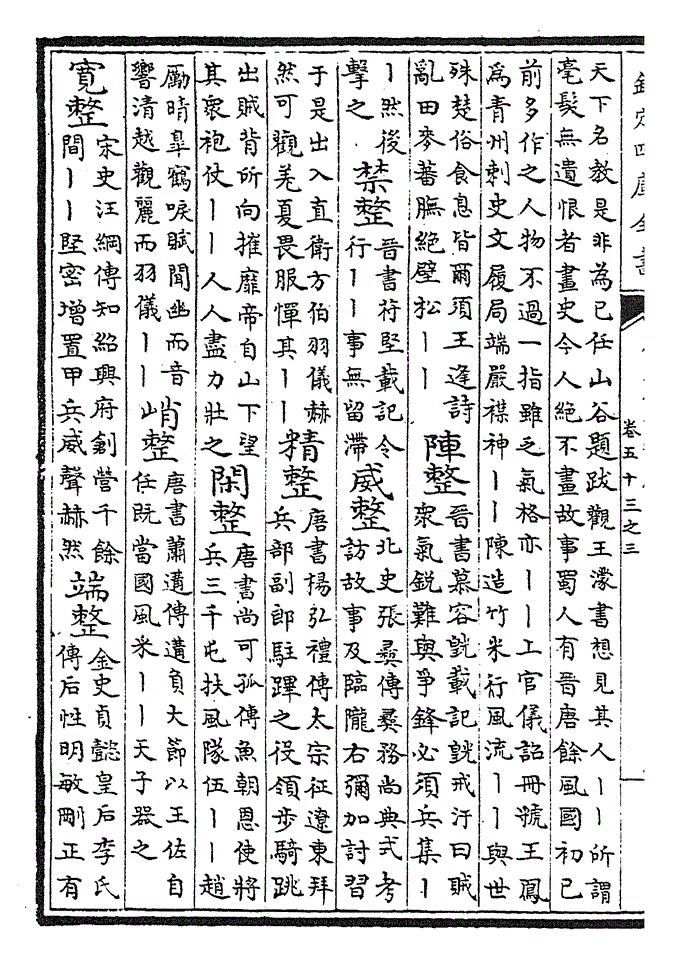 欽定四庫全書
卷五十三之三
天下名教是非為已任山谷題跋觀王濛書想見其人丨丨所謂
毫髮無遺恨者畫史今人絶不畫故事蜀人有晉唐餘風國初已
前多作之人物不過一指雖乏氣格亦丨丨上官儀詔冊號王鳳
為青州刺史文履局端嚴襟神丨丨陳造竹米行風流丨丨與世
殊楚俗食息皆爾須王逢詩
亂田麥蕃膴絶壁松丨丨
陣整
晉書慕容皝載記皝戒汗曰賊
衆氣鋭難與爭鋒必須兵集丨
丨然後
擊之
禁整
晉書苻堅載記令
行丨丨事無留滯
威整
北史張彝傳彝務尚典式考
訪故事及臨隴右彌加討習
于是出入直衛方伯羽儀赫
然可觀羌夏畏服憚其丨丨
精整
唐書楊弘禮傳太宗征遼東拜
兵部副郎駐蹕之役領步騎跳
出賊背所向摧靡帝自山下望
其衆袍仗丨丨人人盡力壯之
閑整
唐書尚可孤傳魚朝恩使將
兵三千屯扶風隊伍丨丨趙
勵晴皐鶴唳賦聞幽而音
響清越觀麗而羽儀丨丨
峭整
唐書蕭遘傳遘負大節以王佐自
任既當國風采丨丨天子器之
寬整
宋史汪綱傳知紹興府創營千餘
間丨丨堅密增置甲兵威聲赫然
端整
金史貞懿皇后李氏
傳后性明敏剛正有